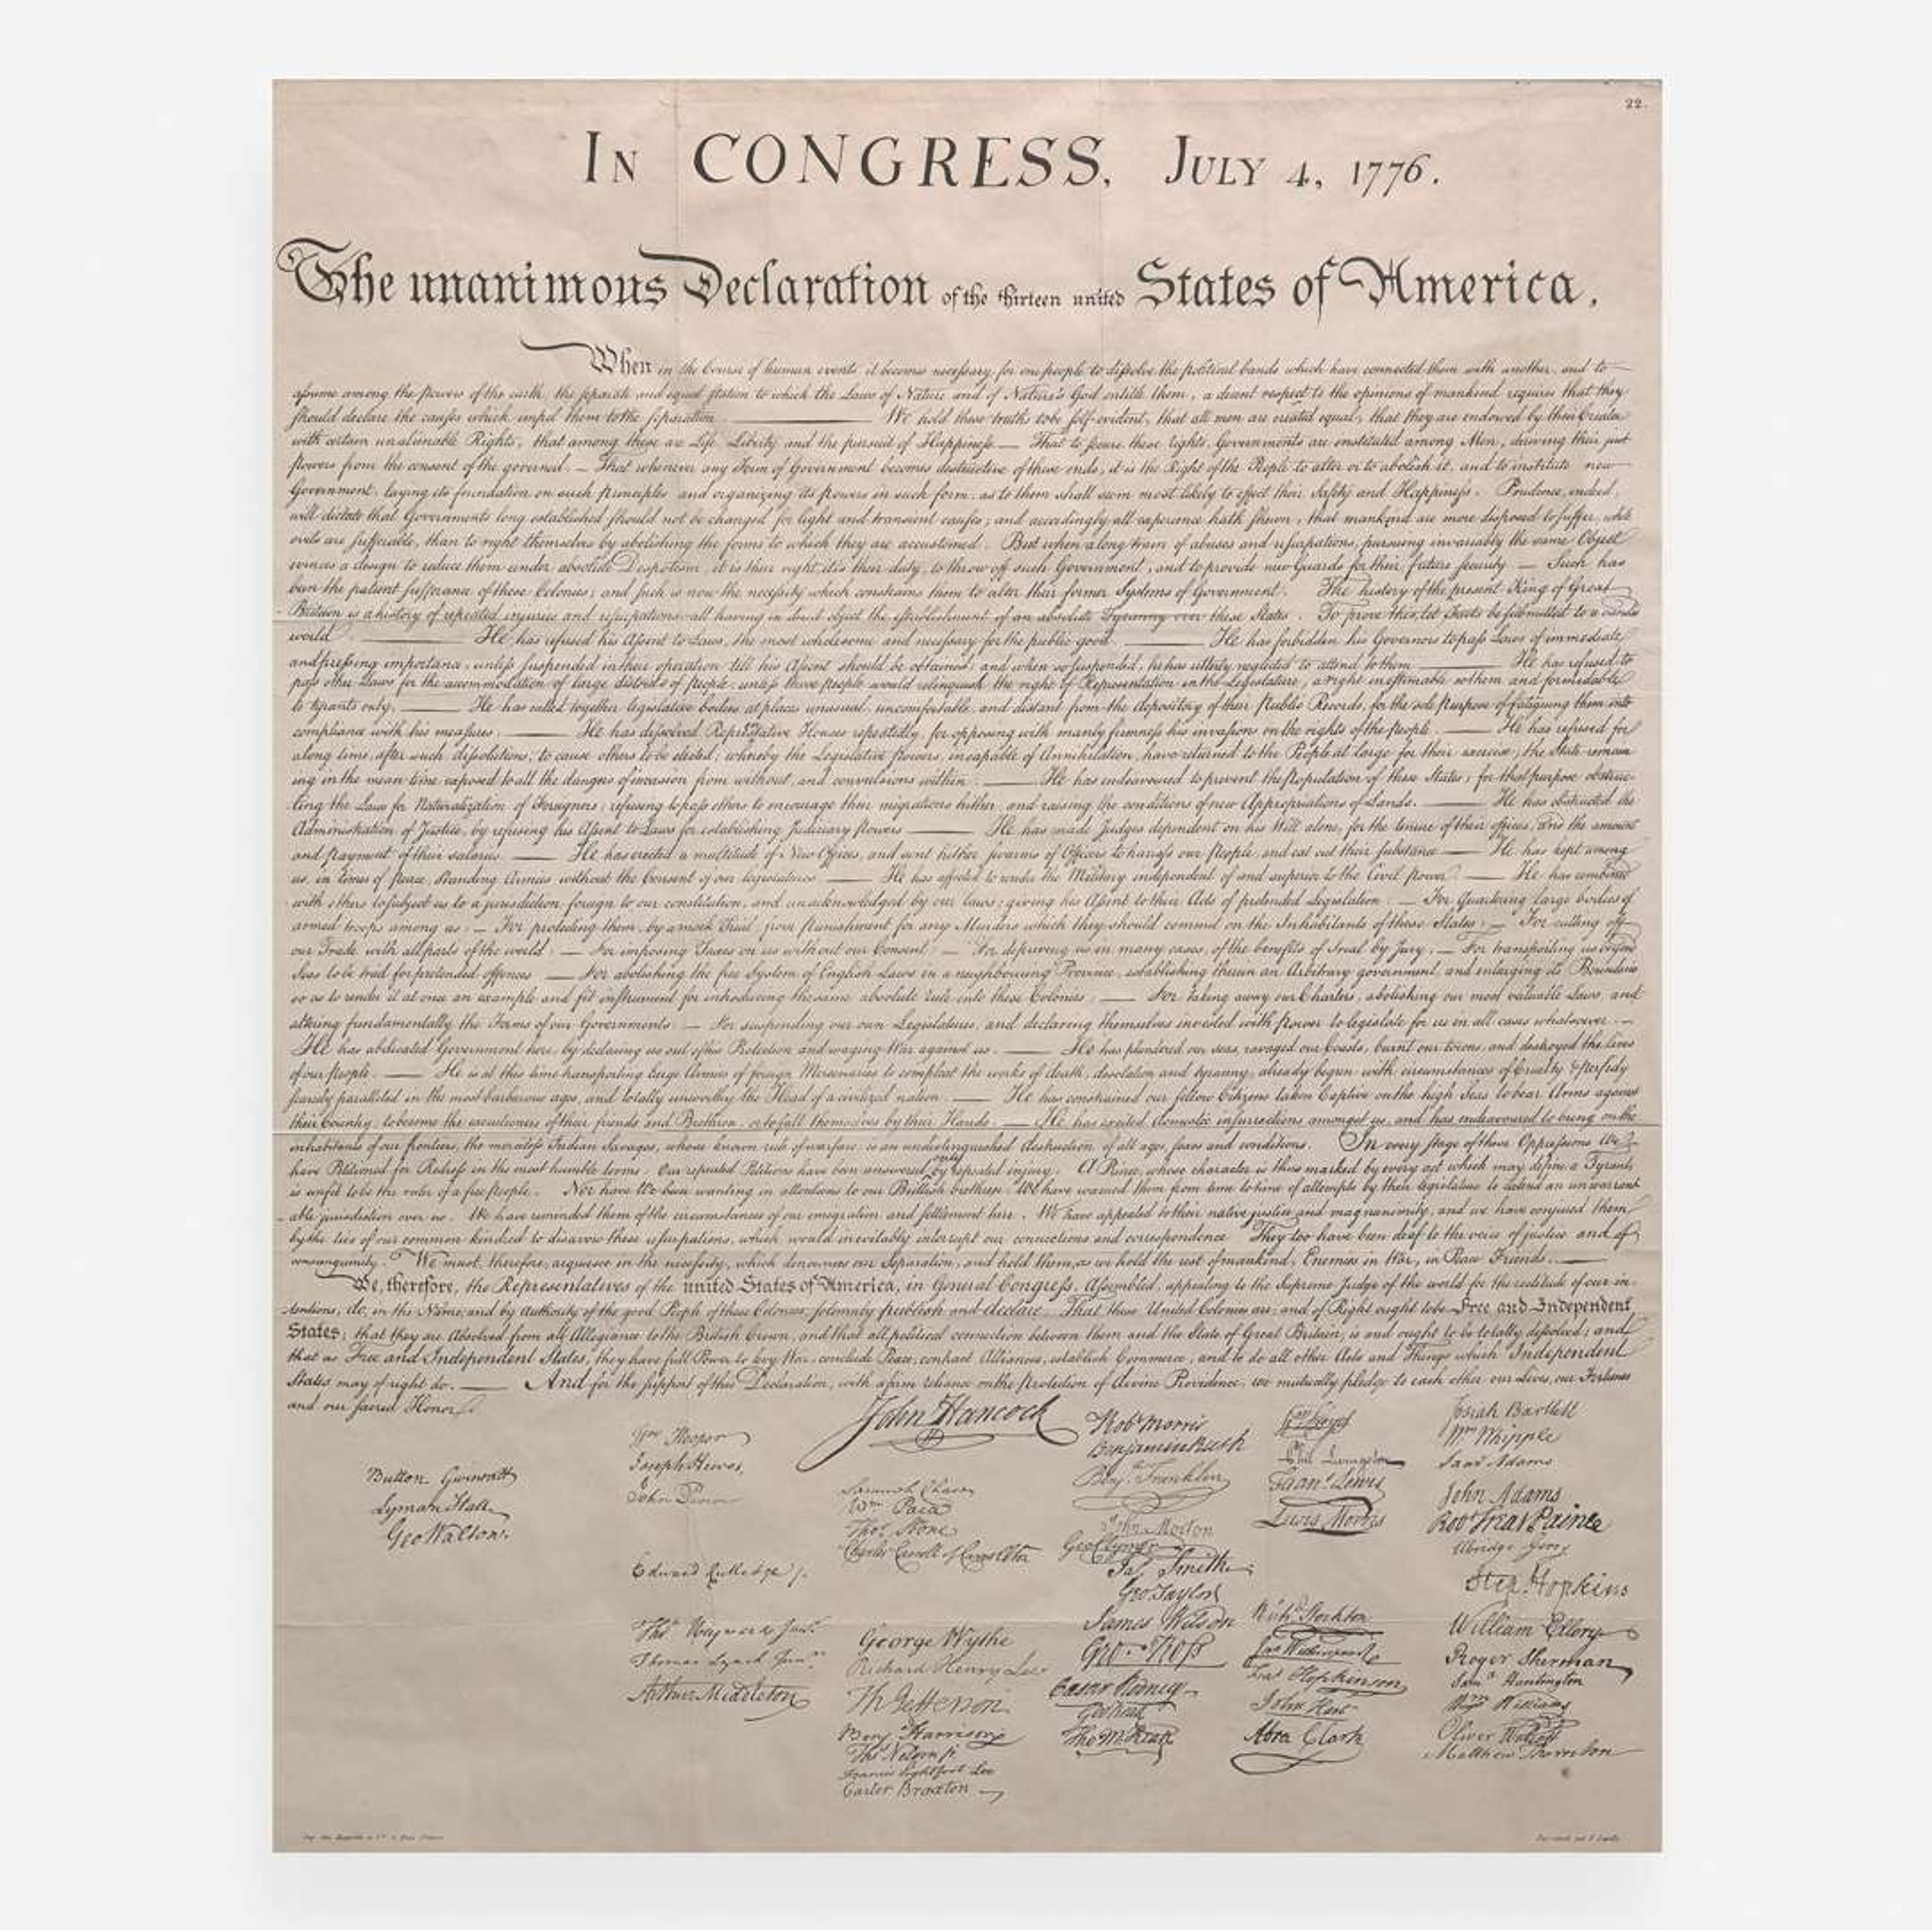 22.
IN CONGRESS, JULY 4, 1776.
The unanimous Declaration of the thirteen united States of America,
When in the Course of human events it becomes necessary for one people to dissolve the political bands which have connected them with another, and to
assume among the Powers of the earth, the separate and equal station to which the Laws of Nature and of Nature's God entitle them, a decent respect to the opinions of mankind requires that they
should declare the causes which impel them to the separation. We hold these truths to be self-evident, that all men are created equal, that they are endowed by their Creator
with certain unalienable Rights, that among these are Life, Liberty and the pursuit of Happiness — That to secure these rights, Governments are instituted among Men, deriving their just
powers from the consent of the governed. — That whenever any Form of Government becomes destructive of these ends, it is the Right of the People to alter or to abolish it, and to institute new
Government, laying its foundation on such principles and organizing its powers in such form, as to them shall seem most likely to effect their Safety and Happiness. Prudence, indeed,
will dictate that Governments long established should not be changed for light and transient causes; and accordingly all experience hath shewn, that mankind are more disposed to suffer, while
evils are sufferable, than to right themselves by abolishing the forms to which they are accustomed. But when a long train of abuses and usurpations, pursuing invariably the same Object
evinces a design to reduce them under absolute Despotism, it is their right, it is their duty, to throw off such Government, and to provide new Guards for their future security. — Such has
been the patient sufferance of these Colonies; and such is now the necessity which constrains them to alter their former Systems of Government. The history of the present King of Great
Britain is a history of repeated injuries and usurpations, all having in direct object the establishment of an absolute Tyranny over these States. To prove this, let Facts be submitted to a candid
world. He has refused his Assent to Laws, the most wholesome and necessary for the public good. He has forbidden his Governors to pass Laws of immediate
and pressing importance, unless suspended in their operation till his Assent should be obtained; and when so suspended, he has utterly neglected to attend to them. He has refused to
pass other Laws for the accommodation of large districts of people, unless those people would relinquish the right of Representation in the Legislature, a right inestimable to them and formidable
to tyrants only. He has called together legislative bodies at places unusual, uncomfortable, and distant from the depository of their Public Records, for the sole purpose of fatiguing them into
compliance with his measures. He has dissolved Representative Houses repeatedly, for opposing with manly firmness his invasions on the rights of the people. He has refused for
a long time, after such dissolutions, to cause others to be elected; whereby the Legislative powers, incapable of Annihilation, have returned to the People at large for their exercise; the State remain
ing in the mean time exposed to all the dangers of invasion from without, and convulsions within. He has endeavoured to prevent the Population of these States; for that purpose obstruc-
ting the Laws for Naturalization of Foreigners; refusing to pass others to encourage their migrations hither, and raising the conditions of new Appropriations of Lands. He has obstructed the
Administration of Justice, by refusing his Assent to Laws for establishing Judiciary powers. He has made Judges dependent on his Will alone, for the tenure of their offices, and the amount
and payment of their salaries. He has erected a multitude of New Offices, and sent hither swarms of Officers to harass our People, and eat out their substance. He has kept among
us, in times of peace, Standing Armies without the Consent of our legislatures. He has affected to render the Military independent of and superior to the Civil power. He has combined
with others to subject us to a jurisdiction foreign to our constitution, and unacknowledged by our laws; giving his Assent to their Acts of pretended Legislation: — For Quartering large bodies of
armed troops among us: — For protecting them, by a mock Trial, from punishment for any Murders which they should commit on the Inhabitants of these States: — For cutting off
our Trade with all parts of the world: — For imposing Taxes on us without our Consent: — For depriving us in many cases, of the benefits of Trial by Jury: — For transporting us beyond
Seas to be tried for pretended offences — For abolishing the free System of English Laws in a neighbouring Province, establishing therein an Arbitrary government, and enlarging its Boundaries
so as to render it at once an example and fit instrument for introducing the same absolute rule into these Colonies: — For taking away our Charters, abolishing our most valuable Laws, and
altering fundamentally the Forms of our Governments: — For suspending our own Legislatures, and declaring themselves invested with power to legislate for us in all cases whatsoever. —
He has abdicated Government here, by declaring us out of his Protection and waging War against us. — He has plundered our seas, ravaged our Coasts, burnt our towns, and destroyed the lives
of our people. — He is at this time transporting large Armies of foreign Mercenaries to compleat the works of death, desolation and tyranny, already begun with circumstances of Cruelty & perfidy
scarcely paralleled in the most barbarous ages, and totally unworthy the Head of a civilized nation. — He has constrained our fellow Citizens taken Captive on the high Seas to bear Arms against
their Country, to become the executioners of their friends and Brethren, or to fall themselves by their Hands. — He has excited domestic insurrections amongst us, and has endeavoured to bring on the
inhabitants of our frontiers, the merciless Indian Savages, whose known rule of warfare, is an undistinguished destruction of all ages, sexes and conditions. In every stage of these Oppressions We
have Petitioned for Redress in the most humble terms: Our repeated Petitions have been answered only by repeated injury. A Prince, whose character is thus marked by every act which may define a Tyrant,
is unfit to be the ruler of a free people. Nor have We been wanting in attentions to our Brittish brethren. We have warned them from time to time of attempts by their legislature to extend an unwarrant
-able jurisdiction over us. We have reminded them of the circumstances of our emigration and settlement here. We have appealed to their native justice and magnanimity, and we have conjured them
by the ties of our common kindred to disavow these usurpations, which, would inevitably interrupt our connections and correspondence. They too have been deaf to the voice of justice and of
consanguinity. We must, therefore, acquiesce in the necessity, which denounces our Separation, and hold them, as we hold the rest of mankind, Enemies in War, in Peace Friends.
We, therefore, the Representatives of the united States of America, in General Congress, Assembled, appealing to the Supreme Judge of the world for the rectitude of our in-
tentions, do, in the Name, and by Authority of the good People of these Colonies, solemnly publish and declare, That these United Colonies are, and of Right ought to be Free and Independent
States; that they are Absolved from all Allegiance to the British Crown, and that all political connection between them and the State of Great Britain, is and ought to be totally dissolved; and
that as Free and Independent States, they have full Power to levy War, conclude Peace, contract Alliances, establish Commerce, and to do all other Acts and Things which Independent
States may of right do. — And for the support of this Declaration, with a firm reliance on the protection of divine Providence, we mutually pledge to each other our Lives, our Fortunes
and our sacred Honor.
Button Gwinnett
Lyman Hall
Geo Walton.
Wm Hooper
Joseph Hewes,
John Penn
Edward Rutledge /.
Thos Heyward Junr.
Thomas Lynch Junr.
Arthur Middleton
John Hancock
Samuel Chase
Wm Paca
Thos Stone
Charles Carroll of Carrollton
George Wythe
Richard Henry Lee
Th Jefferson
Benj Harrison
Thos Nelson jr
Francis Lightfoot Lee
Carter Braxton
Robt Morris
Benjamin Rush
Benj. Franklin
John Morton
Geo Clymer
Jas. Smith
Geo. Taylor
James Wilson
Geo. Ross
Caesar Rodney
Geo Read
Tho M:Kean
Wm Floyd
Phil. Livingston
Frans. Lewis
Lewis Morris
Richd. Stockton
Jno Witherspoon
Fras. Hopkinson
John Hart
Abra Clark
Josiah Bartlett
Wm Whipple
Saml Adams
John Adams
Robt Treat Paine
Elbridge Gerry
Step. Hopkins
William Ellery
Roger Sherman
Saml Huntington
Wm Williams
Oliver Wolcott
Matthew Thornton